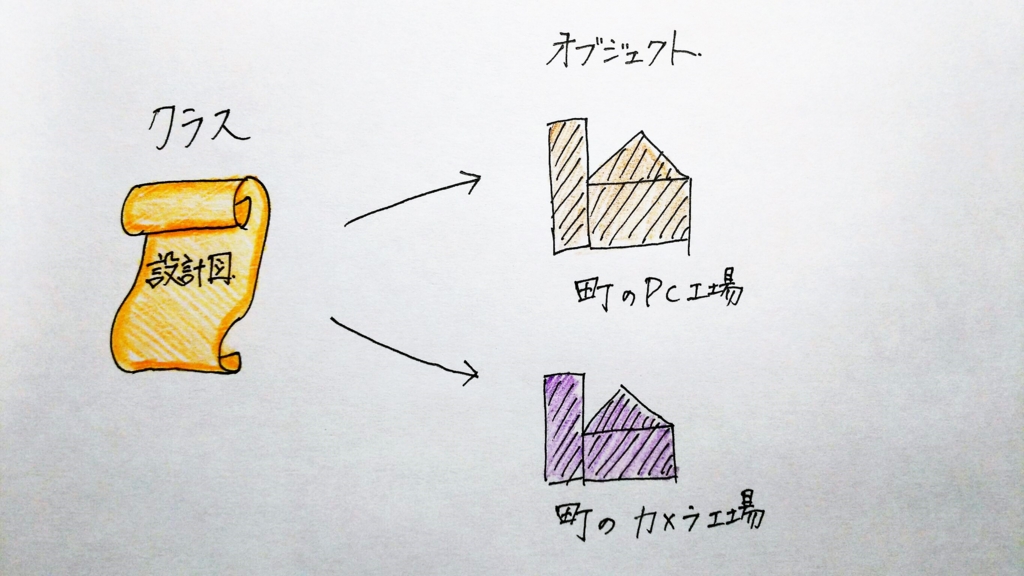 オブジェクト
クラス
設計図
町のPC工場
町のカメラ工場